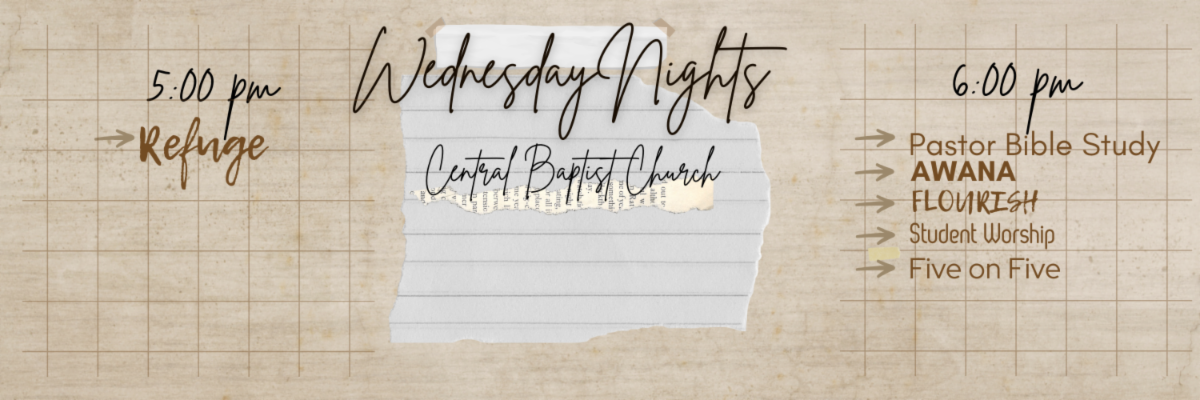 Wednesday Nights
Central Baptist Church
5:00 pm
Refuge
6:00 pm
Pastor Bible Study
AWANA
FLOURISH
Student Worship
Five on Five